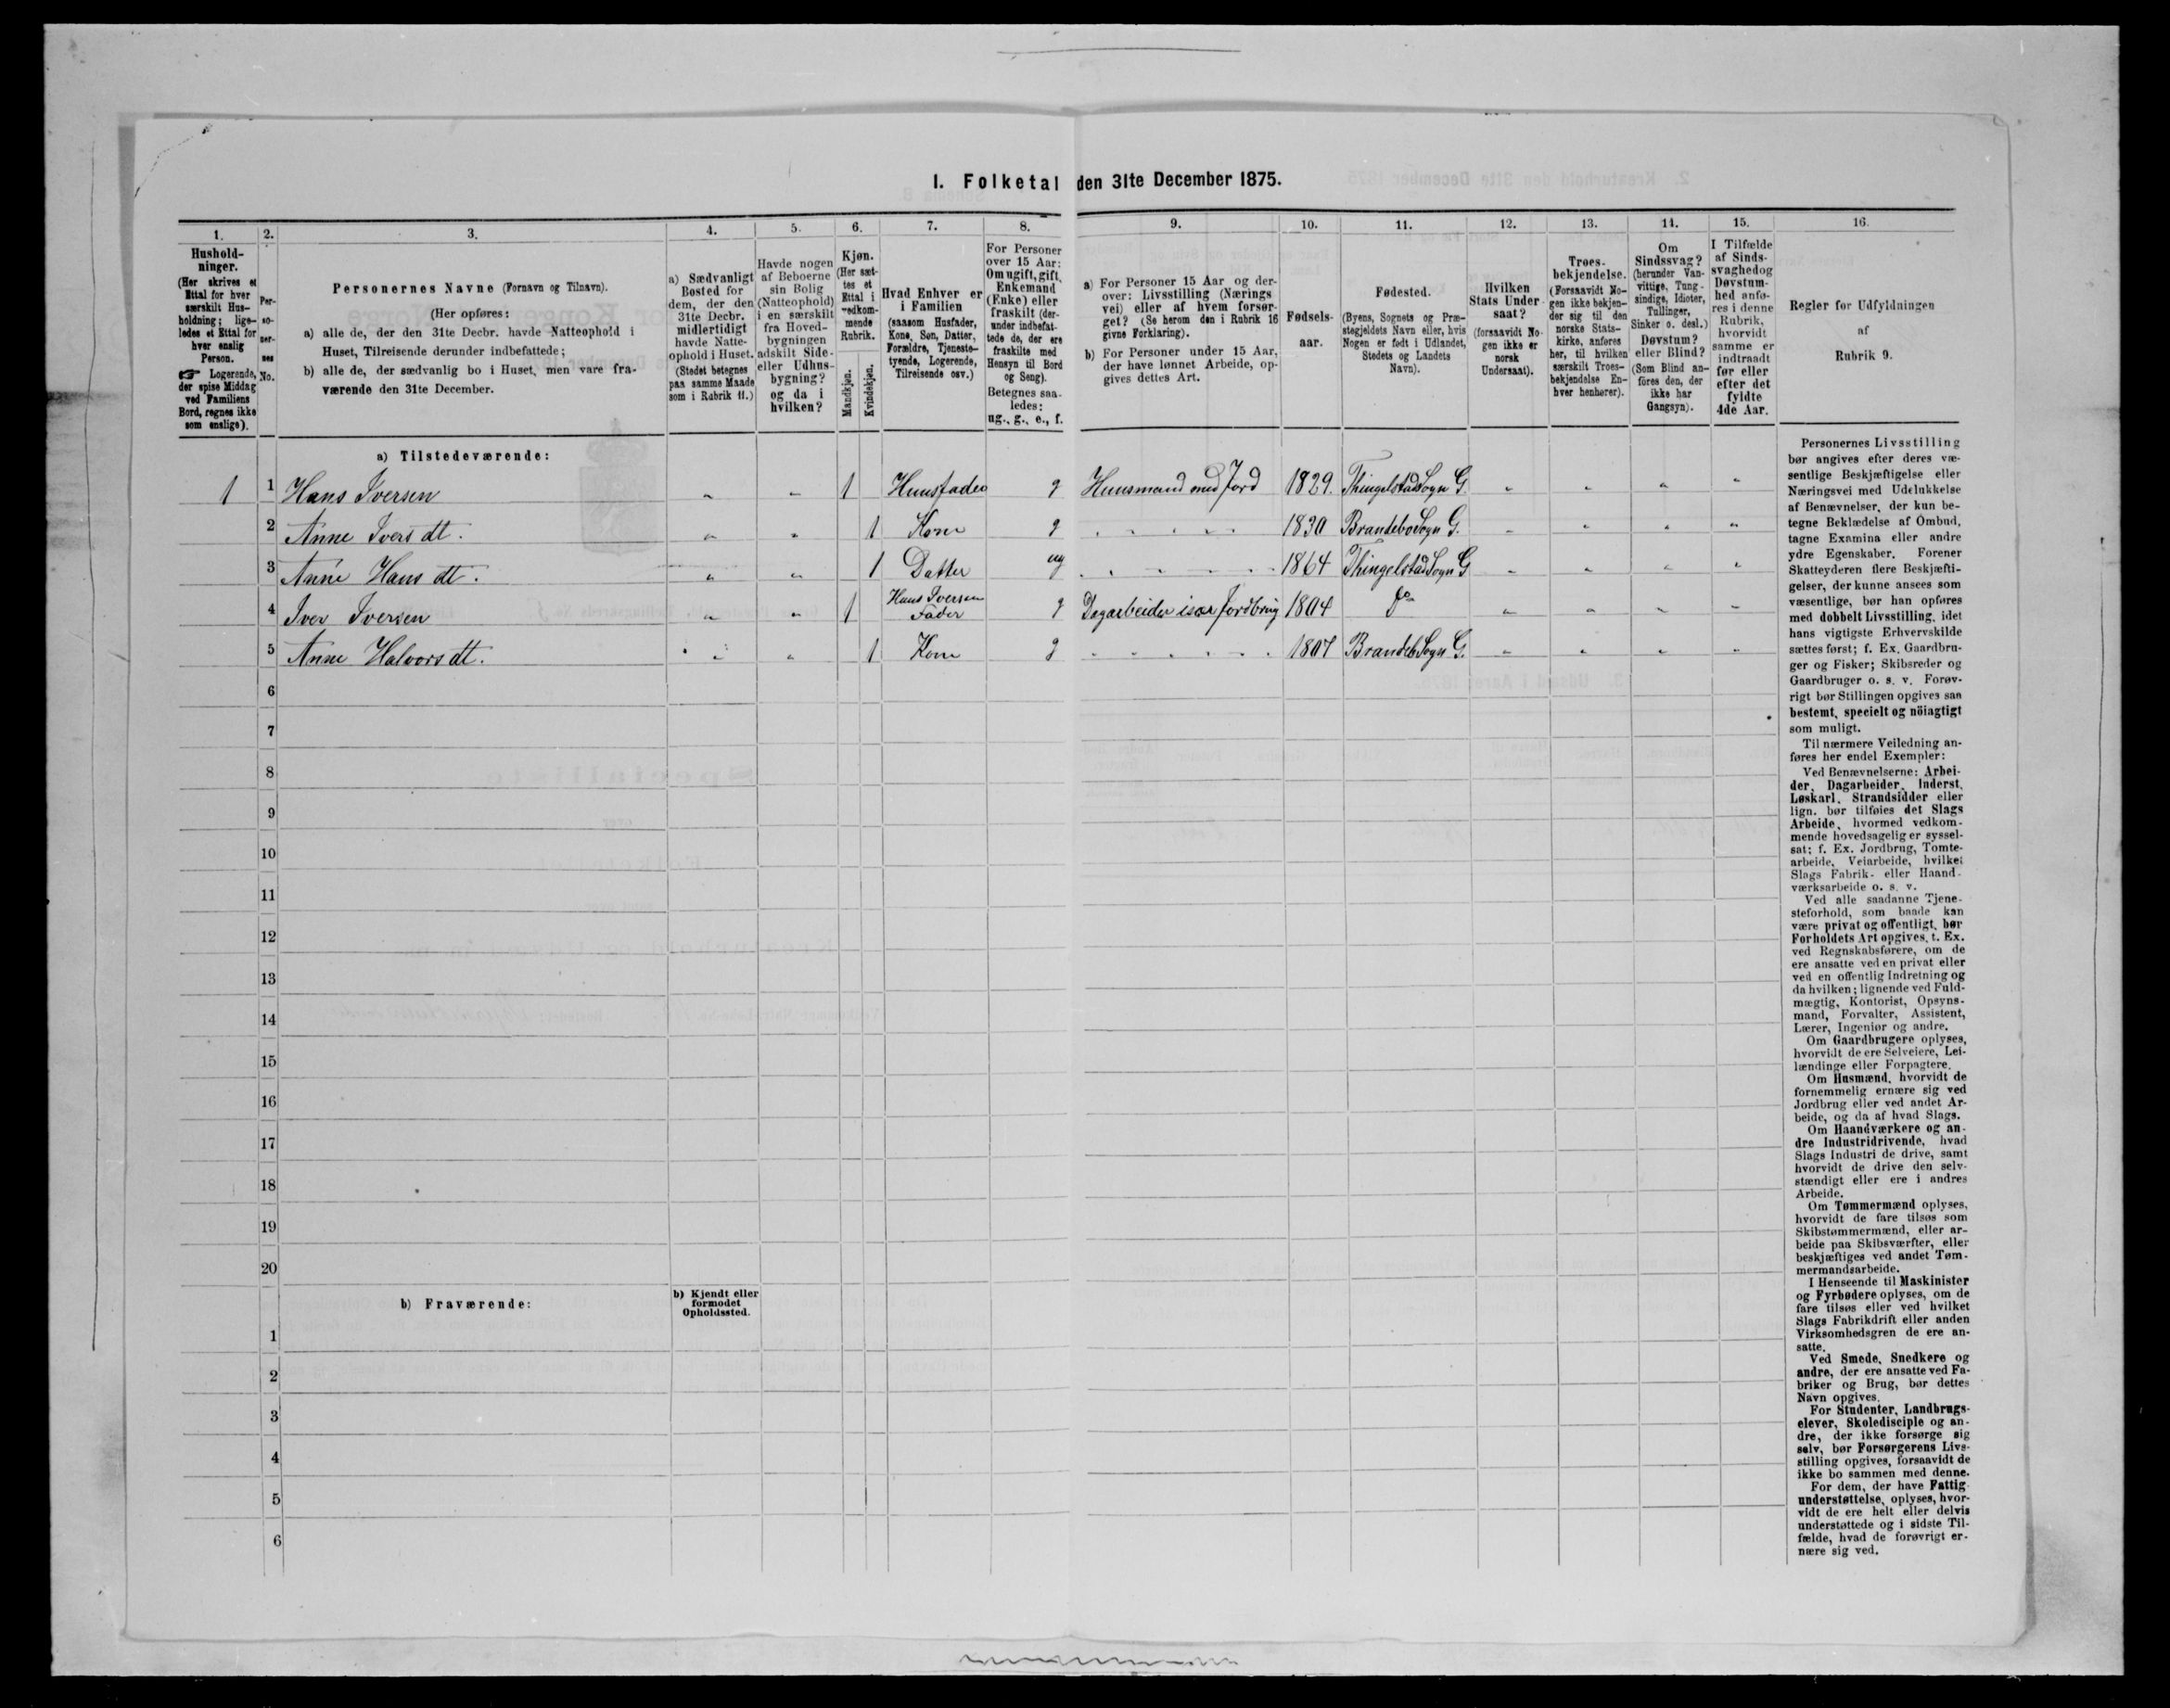 I. Folketal den 31te December 1875.
1.
Hushold-
ninger.
(Her skrives et
Ettal for hver
særskilt Hus-
holdning; lige-
ledes et Ettal for
hver enslig
Person.
☞ Logerende,
der spise Middag
ved Familiens
Bord, regnes ikke
som enslige).
2.
Per-
so-
ner-
nes
No.
3.
Personernes Navne (Fornavn og Tilnavn).
(Her opføres:
a) alle de, der den 31te Decbr. havde Natteophold i
Huset, Tilreisende derunder indbefattede;
b) alle de, der sædvanlig bo i Huset, men vare fra-
værende den 31te December.
4.
a) Sædvanligt
Bosted for
dem, der den
31te Decbr.
midlertidigt
havde Natte-
ophold i Huset.
(Stedet betegnes
paa samme Maade
som i Rubrik 11.)
5.
Havde nogen
af Beboerne
sin Bolig
(Natteophold)
i en særskilt
fra Hoved-
bygningen
adskilt Side-
eller Udhus-
bygning?
og da i
hvilken?
6.
Kjøn.
(Her sæt-
tes et
Ettal i
vedkom-
mende
Rubrik.
Mandkjøn.
Kvindekjøn.
7.
Hvad Enhver er
i Familien
(saasom Husfader,
Kone, Søn, Datter,
Forældre, Tjeneste-
tyende, Logerende,
Tilreisende osv.)
8.
For Personer
over 15 Aar:
Om ugift, gift,
Enkemand
(Enke) eller
fraskilt (der-
under indbefat-
tede de, der ere
fraskilte med
Hensyn til Bord
og Seng).
Betegnes saa-
ledes:
ug., g., e., f.
9.
a) For Personer 15 Aar og der-
over: Livsstilling (Nærings
vei) eller af hvem forsør-
get? (Se herom den i Rubrik 16
givne Forklaring).
b) For Personer under 15 Aar,
der have lønnet Arbeide, op-
gives dettes Art.
10.
Fødsels-
aar.
11.
Fødested.
(Byens, Sognets og Præ-
stegjeldets Navn eller, hvis
Nogen er født i Udlandet,
Stedets og Landets
Navn).
12.
Hvilken
Stats Under-
saat?
(forsaavidt No-
gen ikke er
norsk
Undersaat).
13.
Troes-
bekjendelse.
(Forsaavidt No-
gen ikke bekjen-
der sig til den
norske Stats-
kirke, anføres
her, til hvilken
særskilt Troes-
bekjendelse En-
hver henhører).
14.
Om
Sindssvag?
(herunder Van-
vittige, Tung-
sindige, Idioter,
Tullinger,
Sinker o. desl.)
Døvstum?
eller Blind?
(Som Blind an-
føres den, der
ikke har
Gangsyn).
15.
I Tilfælde
af Sinds-
svaghedog
Døvstum-
hed anfø-
res i denne
Rubrik,
hvorvidt
samme er
indtraadt
før eller
efter det
fyldte
4de Aar.
16.
Regler for Udfyldningen
af
Rubrik 9.
a) Tilstedeværende:
1 1 Hans Iversen " " 1 Huusfader g Huusmand med Jord 1829. Thingelstad Sogn G. " " " "
2 Anne Ivers dt. " " 1 Kone g " " " " " 1830 Brandebo Sogn G. " " " "
3 Anne Hans dt. " " 1 Datter ug " " " " " 1864 Thingelstad Sogn G " " " "
4 Iver Iversen " " 1 Hans Iversen Fader g Dagarbeider især Jordbrug 1804 Do " " " "
5 Anne Halvors dt. " " 1 Kone g " " " " " 1807 Brandeb Sogn G. " " " "
6
7
8
9
10
11
12
13
14
15
16
17
18
19
20
b) Fraværende:
b) Kjendt eller
formodet
Opholdssted.
1
2
3
4
5
6
Personernes Livsstilling
bør angives efter deres væ-
sentlige Beskjæftigelse eller
Næringsvei med Udelukkelse
af Benævnelser, der kun be-
tegne Beklædelse af Ombud,
tagne Examina eller andre
ydre Egenskaber. Forener
Skatteyderen flere Beskjæfti-
gelser, der kunne ansees som
væsentlige, bør han opføres
med dobbelt Livsstilling, idet
hans vigtigste Erhvervskilde
sættes først; f. Ex. Gaardbru-
ger og Fisker; Skibsreder og
Gaardbruger o. s. v. Forøv-
rigt bør Stillingen opgives saa
bestemt, specielt og nöiagtigt
som muligt.
Til nærmere Veiledning an-
føres her endel Exempler:
Ved Benævnelserne: Arbei-
der, Dagarbeider, Inderst,
Løskarl, Strandsidder eller
lign. bør tilføies det Slags
Arbeide, hvormed vedkom-
mende hovedsagelig er syssel-
sat; f. Ex. Jordbrug, Tomte-
arbeide, Veiarbeide, hvilket
Slags Fabrik- eller Haand-
værksarbeide o. s. v.
Ved alle saadanne Tjene-
steforhold, som baade kan
være privat og offentligt, bør
Forholdets Art opgives, t. Ex.
ved Regnskabsførere, om de
ere ansatte ved en privat eller
ved en offentlig Indretning og
da hvilken; lignende ved Fuld-
mægtig, Kontorist, Opsyns-
mand, Forvalter, Assistent,
Lærer, Ingeniør og andre.
Om Gaardbrugere oplyses,
hvorvidt de ere Selveiere, Lei-
lændinge eller Forpagtere.
Om Husmænd, hvorvidt de
fornemmelig ernære sig ved
Jordbrug eller ved andet Ar-
beide, og da af hvad Slags.
Om Haandværkere og an-
dre Industridrivende, hvad
Slags Industri de drive, samt
hvorvidt de drive den selv-
stændigt eller ere i andres
Arbeide.
Om Tømmermænd oplyses,
hvorvidt de fare tilsøs som
Skibstømmermænd, eller ar-
beide paa Skibsværfter, eller
beskjæftiges ved andet Tøm-
mermandsarbeide.
I Henseende til Maskinister
og Fyrbødere oplyses, om de
fare tilsøs eller ved hvilket
Slags Fabrikdrift eller anden
Virksomhedsgren de ere an-
satte.
Ved Smede, Snedkere og
andre, der ere ansatte ved Fa-
briker og Brug, bør dettes
Navn opgives.
For Studenter, Landbrugs-
elever, Skoledisciple og an-
dre, der ikke forsørge sig
selv, bør Forsørgerens Livs-
stilling opgives, forsaavidt de
ikke bo sammen med denne.
For dem, der have Fattig-
understøttelse, oplyses, hvor-
vidt de ere helt eller delvis
understøttede og i sidste Til-
fælde, hvad de forøvrigt er-
nære sig ved.